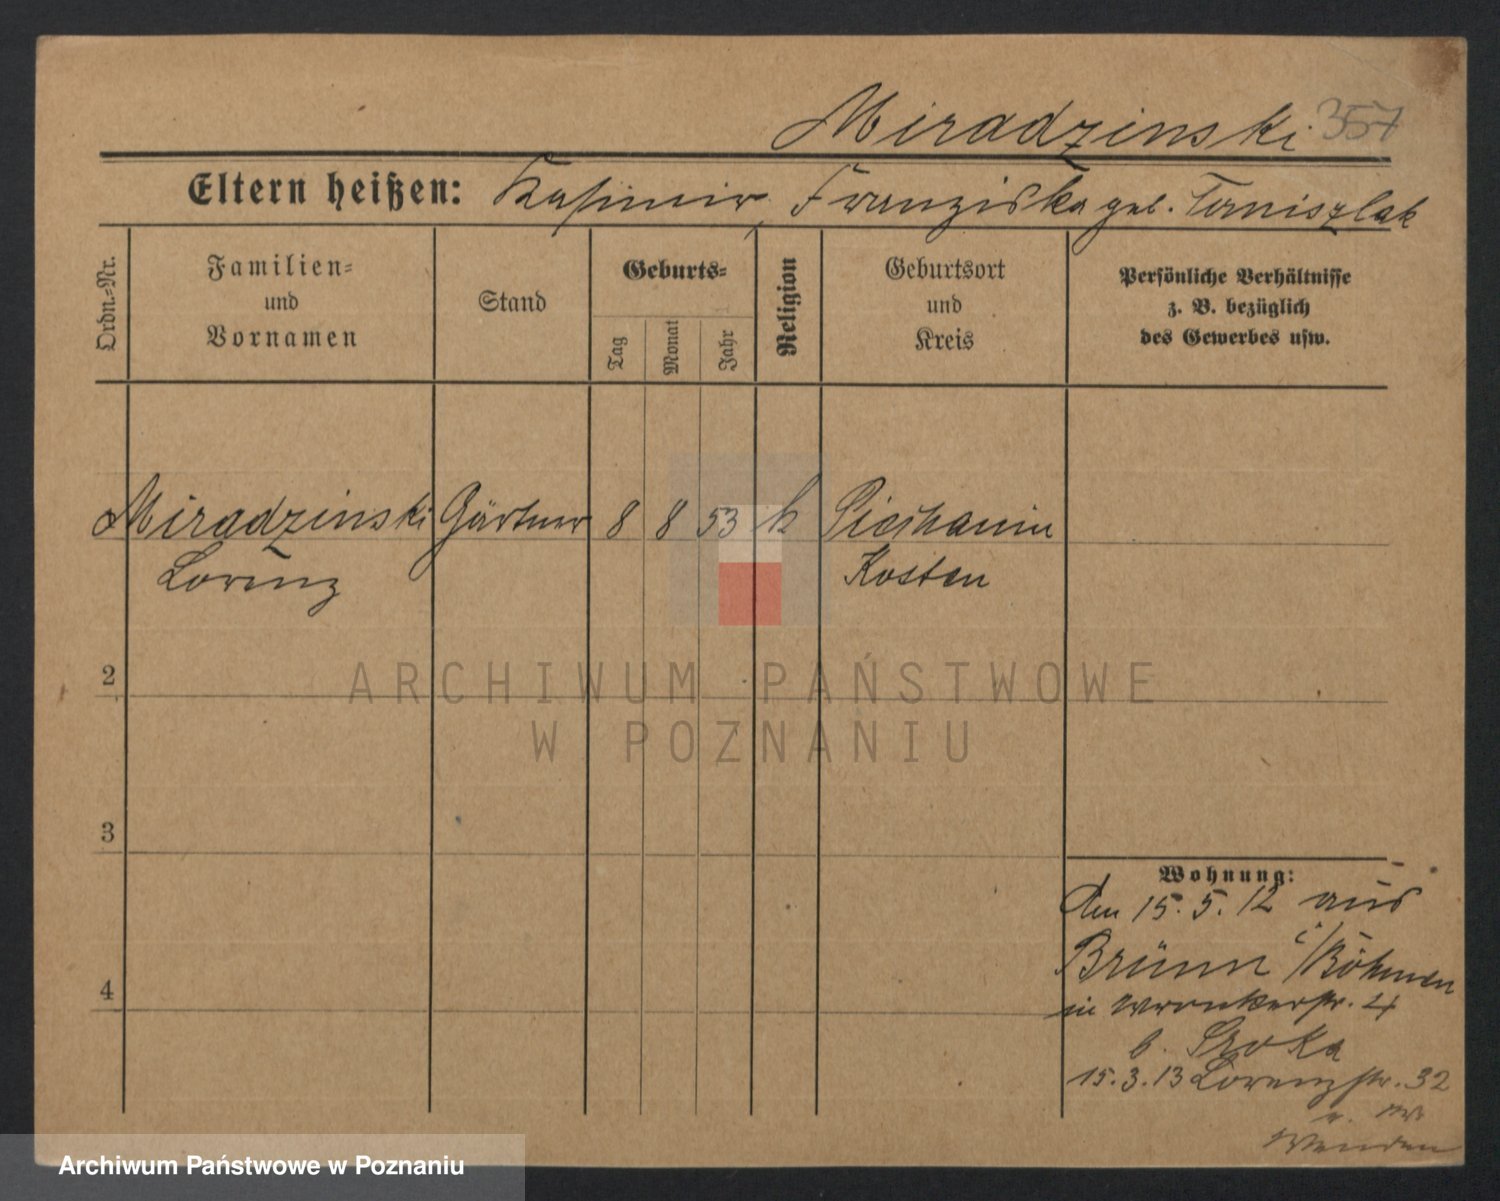 Miradzinski 357
Eltern heißen: Kasimir, Franziska geb. Taniszlak
Ordn.-Nr.
Familien-
und
Vornamen
Stand
Geburts-
Tag
Monat
Jahr
Religion
Geburtsort
und
Kreis
Persönliche Verhältnisse
z. B. bezüglich
des Gewerbes usw.
Miradzinski Gärtner 8 8 53 k Piechanin
Lorenz Kosten
2
3
4
Wohnung:
Den 15.5.12 aus
Brünn i/Böhmen
in Wronkerstr. 4
b. Sroka
15.3.13 Lorenzstr. 32
Wenden
ARCHIWUM PAŃSTWOWE
W POZNANIU
Archiwum Państwowe w Poznaniu